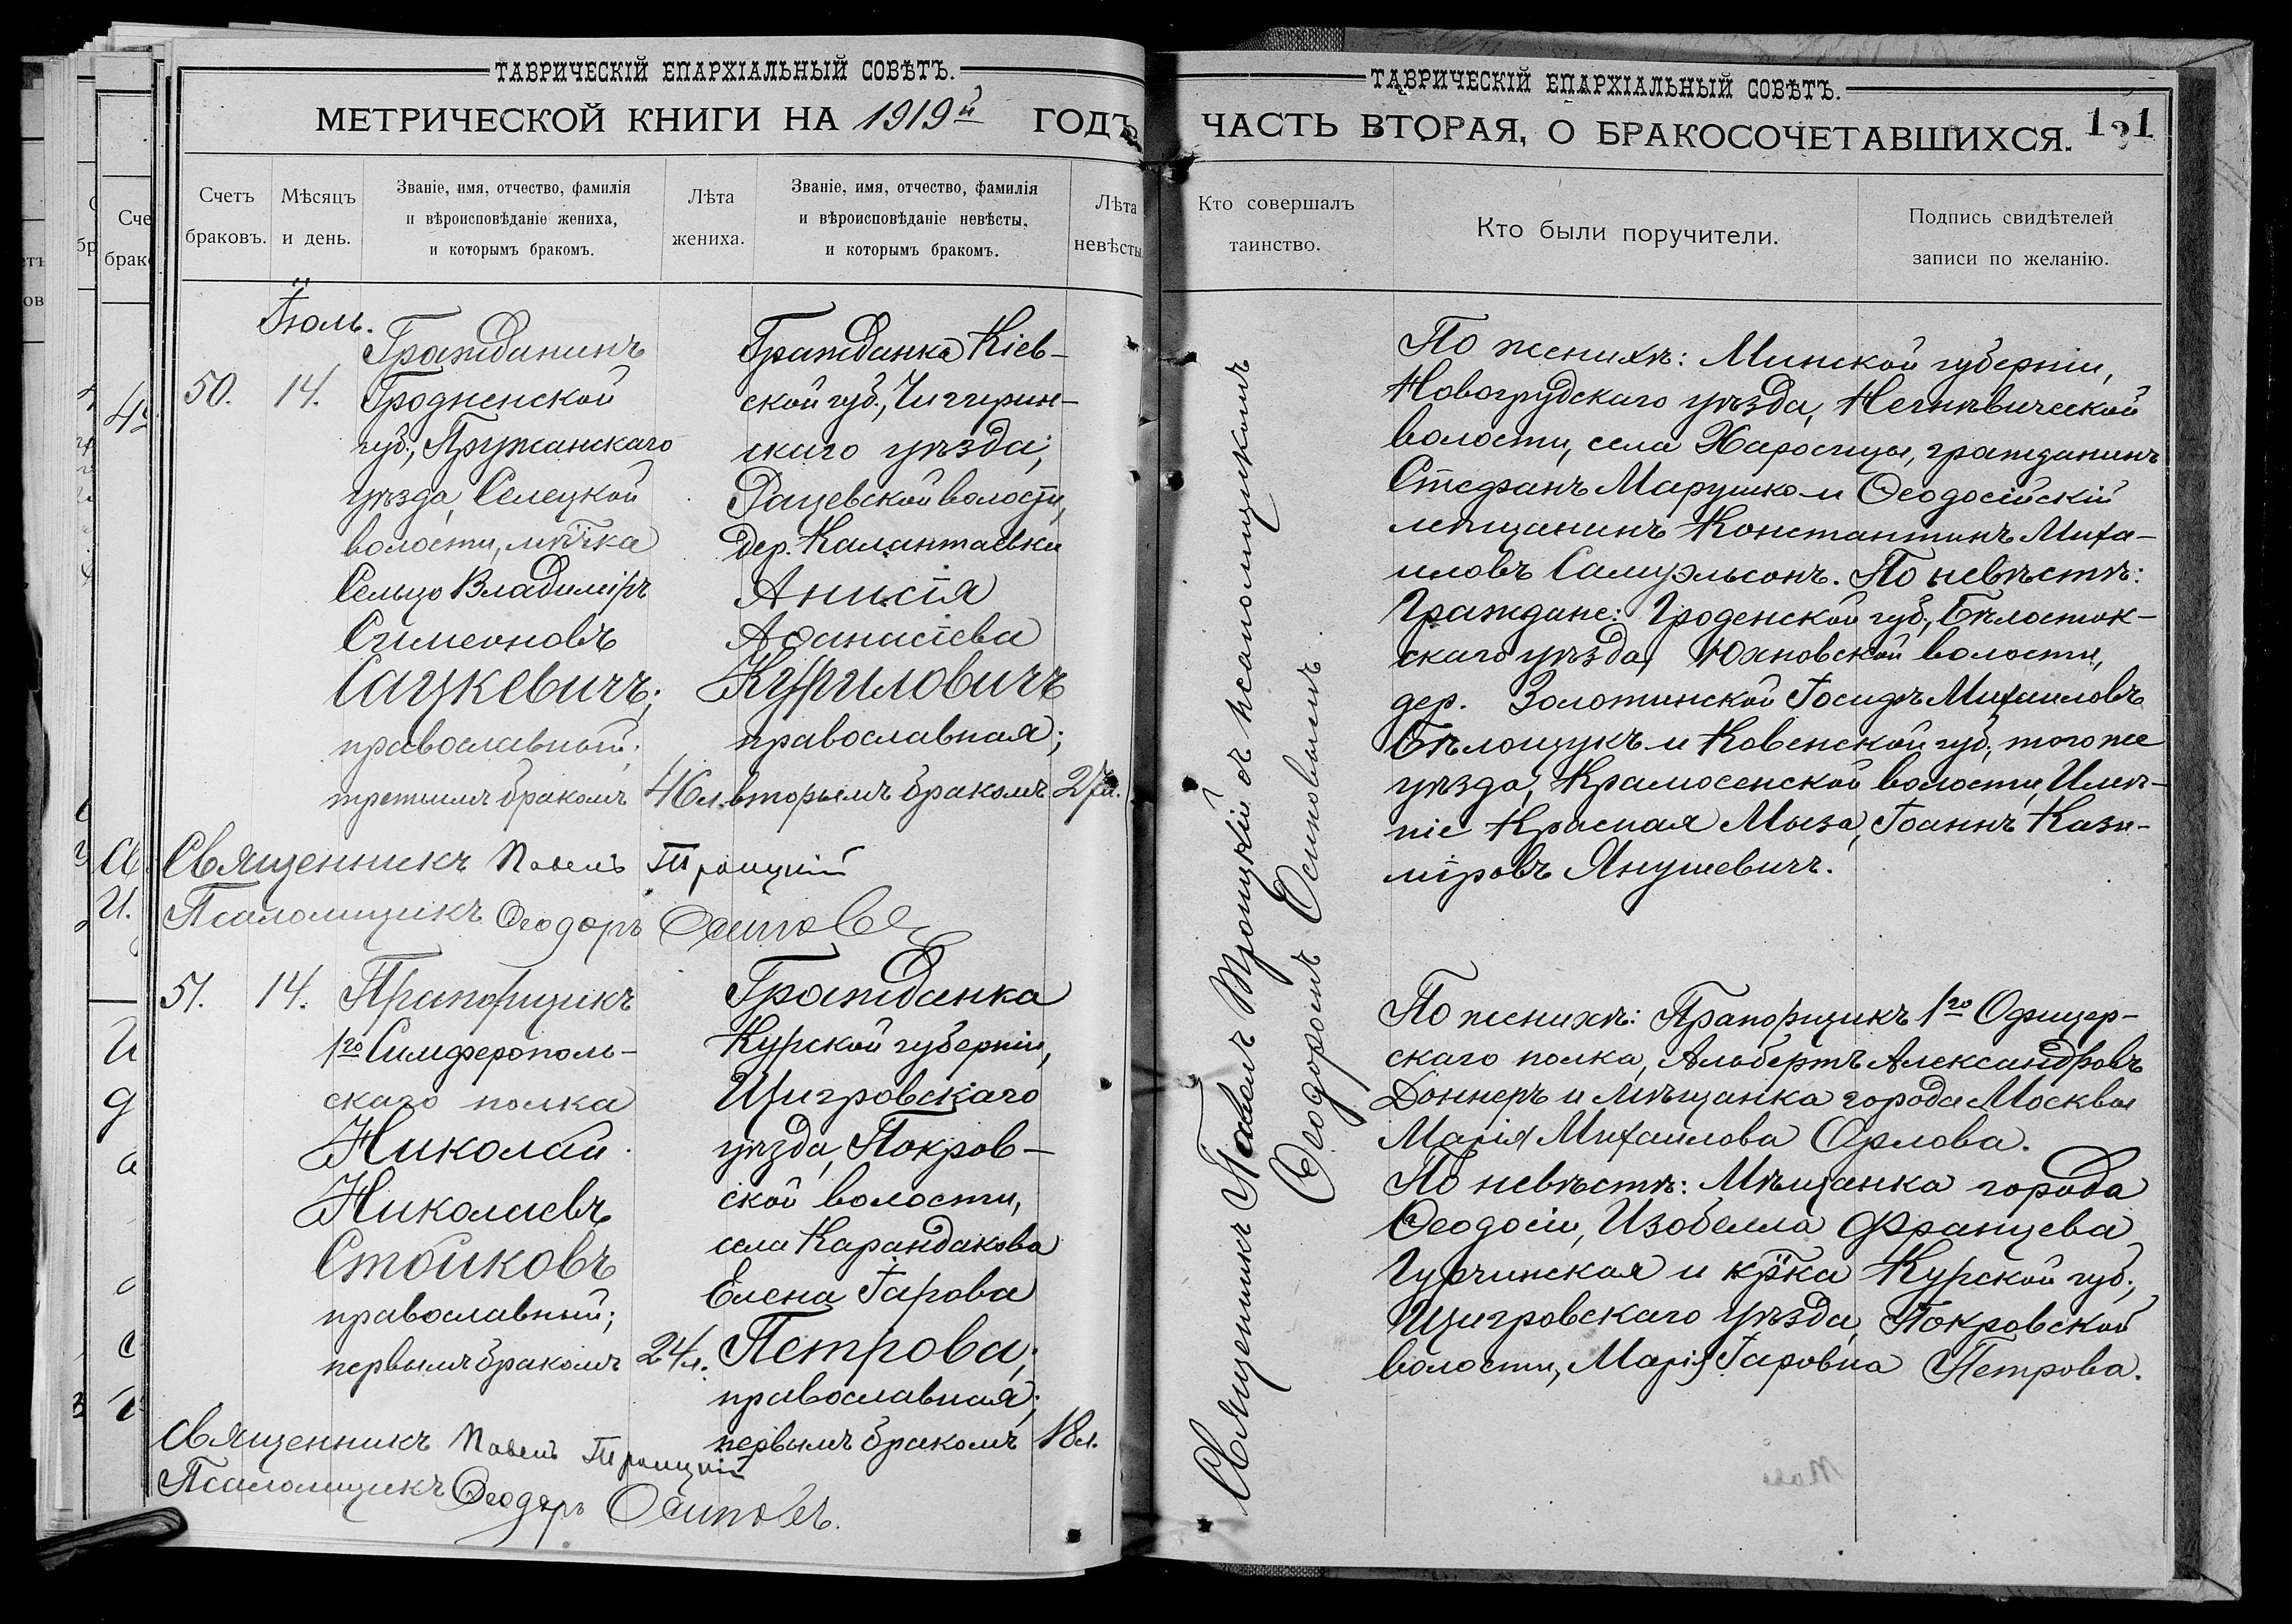 ТАВРИЧЕСКІЙ ЕПАРХІАЛЬНЫЙ СОВѢТЪ.
МЕТРИЧЕСКОЙ КНИГИ НА 1919й ГОДЪ
Счетъ браковъ.
Мѣсяцъ и день.
Званіе, имя, отчество, фамилія
и вѣроисповѣданіе жениха,
и которымъ бракомъ.
Лѣта жениха.
Званіе, имя, отчество, фамилія
и вѣроисповѣданіе невѣсты,
и которымъ бракомъ.
Лѣта невѣсты
Іюль.
50.
14.
Гражданинъ
Гродненской
губ., Пружанскаго
уѣзда, Селецкой
волости, м-чка
Сельцо Владиміръ
Симеоновъ
Сацкевичъ;
православный;
третьимъ бракомъ
46 л.
Гражданка Кіев-
ской губ., Чигирин-
скаго уѣзда,
Рацевской волости,
дер. Калантаевки
Анисія
Аѳанасіева
Куриловичъ
православная;
вторымъ бракомъ
27 л.
Священникъ Павелъ Троицкій
Псаломщикъ Ѳеодоръ Осиповъ
51.
14.
Прапорщикъ
1го Симферополь-
скаго полка
Николай
Николаевъ
Стойковъ
православный;
первымъ бракомъ
24 л.
Гражданка
Курской губерніи,
Щигровскаго
уѣзда, Покров-
ской волости,
села Карандакова
Елена Іарова
Петрова;
православная;
первымъ бракомъ
18 л.
Священникъ Павелъ Троицкій
Псаломщикъ Ѳеодоръ Осиповъ.
ТАВРИЧЕСКІЙ ЕПАРХІАЛЬНЫЙ СОВѢТЪ.
ЧАСТЬ ВТОРАЯ, О БРАКОСОЧЕТАВШИХСЯ.
Кто совершалъ таинство.
Кто были поручители.
Подпись свидѣтелей
записи по желанію.
Священникъ Павелъ Троицкій съ псаломщикомъ
Ѳеодоромъ Осиповымъ.
По женихѣ: Минской губерніи,
Новогрудскаго уѣзда, Негнѣвической
волости, села Харосицы, гражданинъ
Стефанъ Марушко и Ѳеодосійскій
мѣщанинъ Константинъ Миха-
иловъ Самуэльсонъ. По невѣстѣ:
Граждане: Гроденской губ., Бѣлосток-
скаго уѣзда, Юхновской волости,
дер. Золотинской Іосифъ Михаиловъ
Бѣлощукъ и Ковенской губ, того же
уѣзда, Крамосенской волости, Имѣ-
ніе Красная Мыза, Іоаннъ Кази-
міровъ Янушевичъ.
По женихѣ: Прапорщикъ 1го Офицер-
скаго полка, Альбертъ Александровъ
Доннеръ и мѣщанка города Москвы
Марія Михаилова Орлова.
По невѣстѣ: Мѣщанка города
Ѳеодосіи, Изобелла Францева
Гурчинская и кр-ка Курской губ.,
Щигровскаго уѣзда, Покровской
волости, Марія Іаровна Петрова.